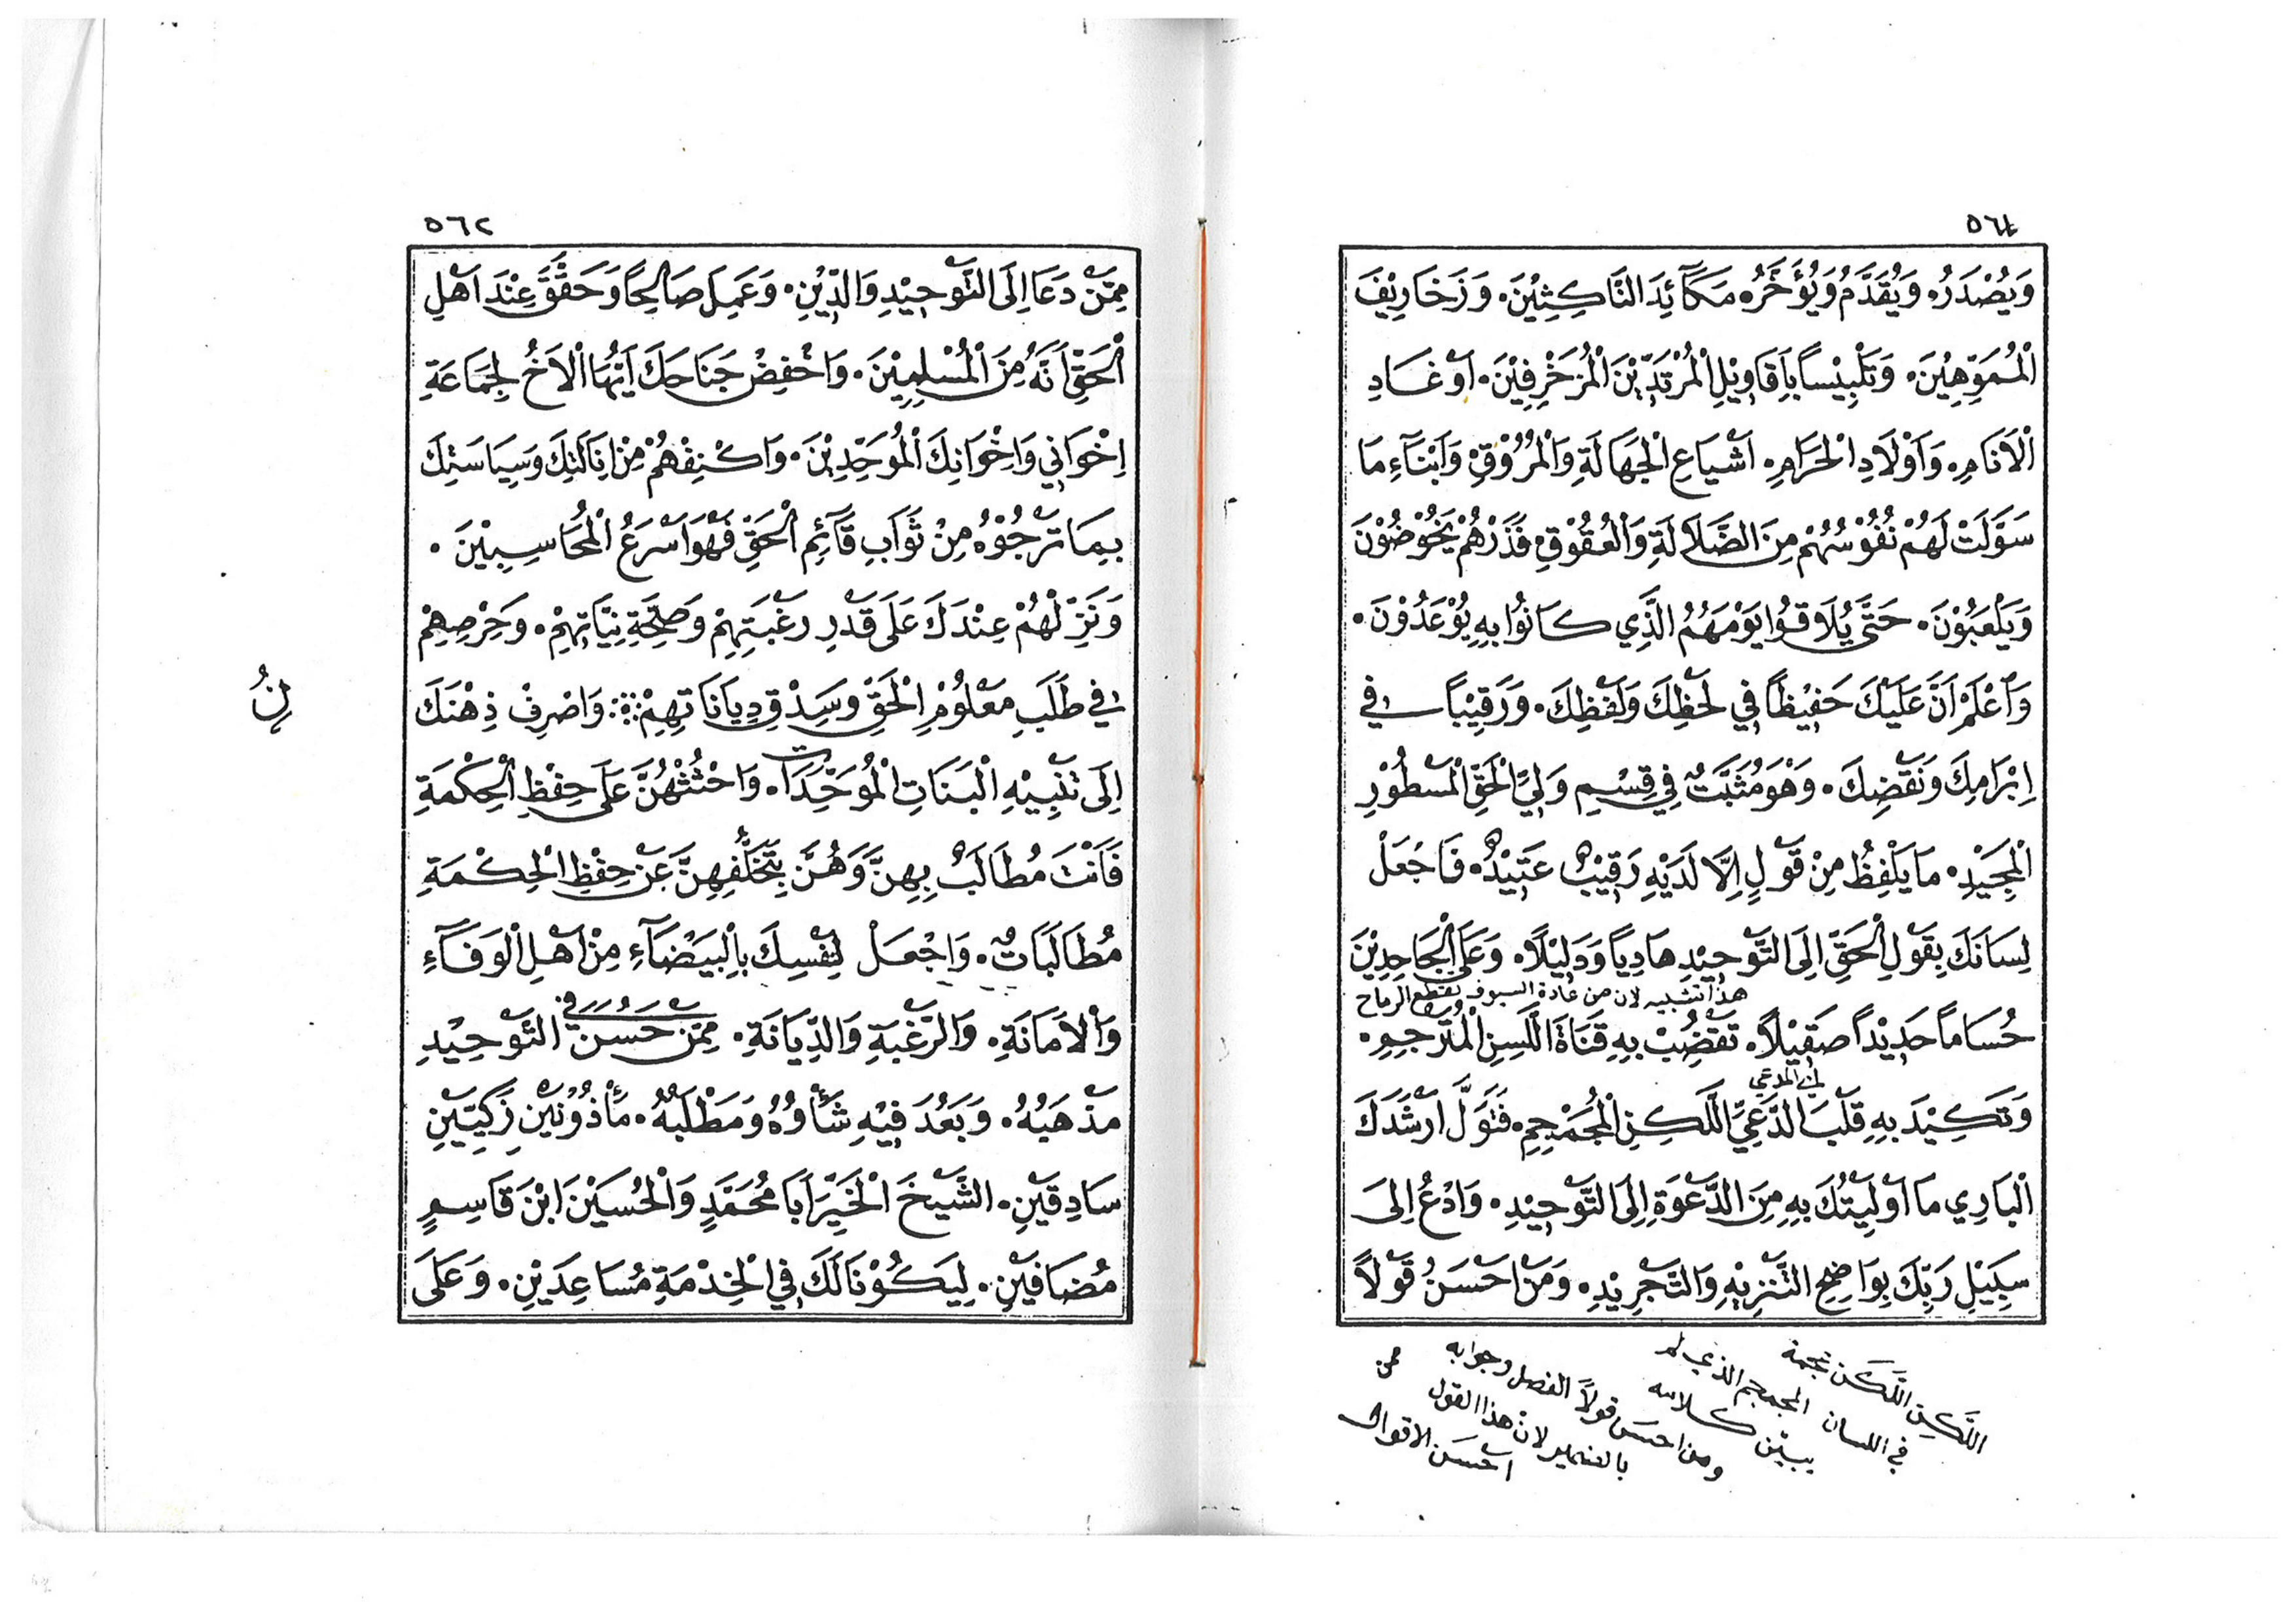 ٥٦١
وَيُصْدَرُهُ وَيُقَدَّمُ وَيُؤَخَّرُهُ مَكَآئِدَ النَّاكِثِيْنَ. وَزَخَارِيْفَ
الْمُمَوِّهِيْنَ. وَتَلْبِيْسًا بِاَقَاوِيْلِ الْمُرْتَدِّيْنَ الْمُزَخْرِفِيْنَ. اَوْغَادِ
الْاَنَامِ. وَاَوْلَادِ الْحَرَامِ. اَشْيَاعِ الْجَهَالَةِ وَالْمُرُوْقِ وَاَبْنَآءِ مَا
سَوَّلَتْ لَهُمْ نُفُوْسُهُمْ مِنَ الضَّلَالَةِ وَالْعُقُوْقِ فَذَرْهُمْ يَخُوْضُوْنَ
وَيَلْعَبُوْنَ. حَتَّى يُلَاقُوْا يَوْمَهُمُ الَّذِي كَانُوا بِهِ يُوْعَدُوْنَ.
وَاَعْلَمْ اَنَّ عَلَيْكَ حَفِيْظًا فِي لَحْظِكَ وَلَفْظِكَ. وَرَقِيْبًا فِي
اِبْرَامِكَ وَنَقْضِكَ. وَهْوَ مُثَبَّتٌ فِي قِسْمِ وَلِيِّ الْحَقِّ الْمَسْطُوْرِ
الْمَجِيْدِ. مَا يَلْفِظُ مِنْ قَوْلٍ اِلَّا لَدَيْهِ رَقِيْبٌ عَتِيْدٌ. فَاجْعَلْ
لِسَانَكَ بِقَوْلِ الْحَقِّ اِلَى التَّوْحِيْدِ هَادِيًا وَدَلِيْلًا. وَعَلَى الْجَاحِدِيْنَ
هذا تشبيه لان من عادة السيوف تقطع الرماح
حُسَامًا حَدِيْدًا صَقِيْلًا. تَقْضُبُ بِهِ قَنَاةَ اللَّسِنِ الْمُتَرْجِمِ.
اي المدعي
وَتَكِيْدَ بِهِ قَلْبَ الدَّعِيِّ اللَّكِنِ الْمُجَمْجِمِ. فَتَوَلَّ اَرْشَدَكَ
الْبَارِي مَا اَوْلَيْتُكَ بِهِ مِنَ الدَّعْوَةِ اِلَى التَّوْحِيْدِ. وَادْعُ اِلَى
سَبِيْلِ رَبِّكَ بِوَاضِحِ التَّنْزِيْهِ وَالتَّجْرِيْدِ. وَمَنْ اَحْسَنُ قَوْلًا
اللَّكِنِ اللَّكَن عجمة
في اللسان المجمجم الذي لم
يبين كلامه
ومن احسن قولًا الفصل وجوابه
بالضمير لان هذا القول
احسن الاقوال
٥٦٢
مِمَّنْ دَعَا اِلَى التَّوْحِيْدِ وَالدِّيْنِ. وَعَمِلَ صَالِحًا وَحَقَّقَ عِنْدَ اَهْلِ
الْحَقِّ اَنَّهُ مِنَ الْمُسْلِمِيْنَ. وَاخْفِضْ جَنَاحَكَ اَيُّهَا الْاَخُ لِجَمَاعَةِ
اِخْوَانِي وَاِخْوَانِكَ الْمُوَحِّدِيْنَ. وَاكْنِفْهُمْ مِنْ اِنَالَتِكَ وَسِيَاسَتِكَ
بِمَا تَرْجُوْهُ مِنْ ثَوَابِ قَآئِمِ الْحَقِّ فَهْوَ اَسْرَعُ الْمُحَاسِبِيْنَ.
وَنَزِّلْهُمْ عِنْدَكَ عَلَى قَدْرِ رَغْبَتِهِمْ وَصِحَّةِ نِيَّاتِهِمْ. وَحَرْصِهِمْ
فِي طَلَبِ مَعْلُوْمِ الْحَقِّ وَسِدْقِ دِيَانَاتِهِمْ. وَاصْرِفْ ذِهْنَكَ
اِلَى تَنْبِيْهِ الْبَنَاتِ الْمُوَحِّدَاتِ. وَاحْثُثْهُنَّ عَلَى حِفْظِ الْحِكْمَةِ
فَاَنْتَ مُطَالَبٌ بِهِنَّ وَهُنَّ بِتَخَلُّفِهِنَّ عَنْ حِفْظِ الْحِكْمَةِ
مُطَالَبَاتٌ. وَاجْعَلْ لِنَفْسِكَ بِالْبَيْضَآءِ مِنْ اَهْلِ الْوَفَآءِ
وَالْاَمَانَةِ. وَالرَّغْبَةِ وَالدِّيَانَةِ. مِمَّنْ حَسُنَ فِي التَّوْحِيْدِ
مَذْهَبُهُ. وَبَعُدَ فِيْهِ شَأْوُهُ وَمَطْلَبُهُ. مَأْذُوْنَيْنِ زَكِيَّيْنِ
سَادِقَيْنِ. الشَّيْخَ الْخَيِّرَ اَبَا مُحَمَّدٍ وَالْحُسَيْنَ ابْنَ قَاسِمٍ
مُضَافَيْنِ. لِيَكُوْنَا لَكَ فِي الْخِدْمَةِ مُسَاعِدَيْنِ. وَعَلَى